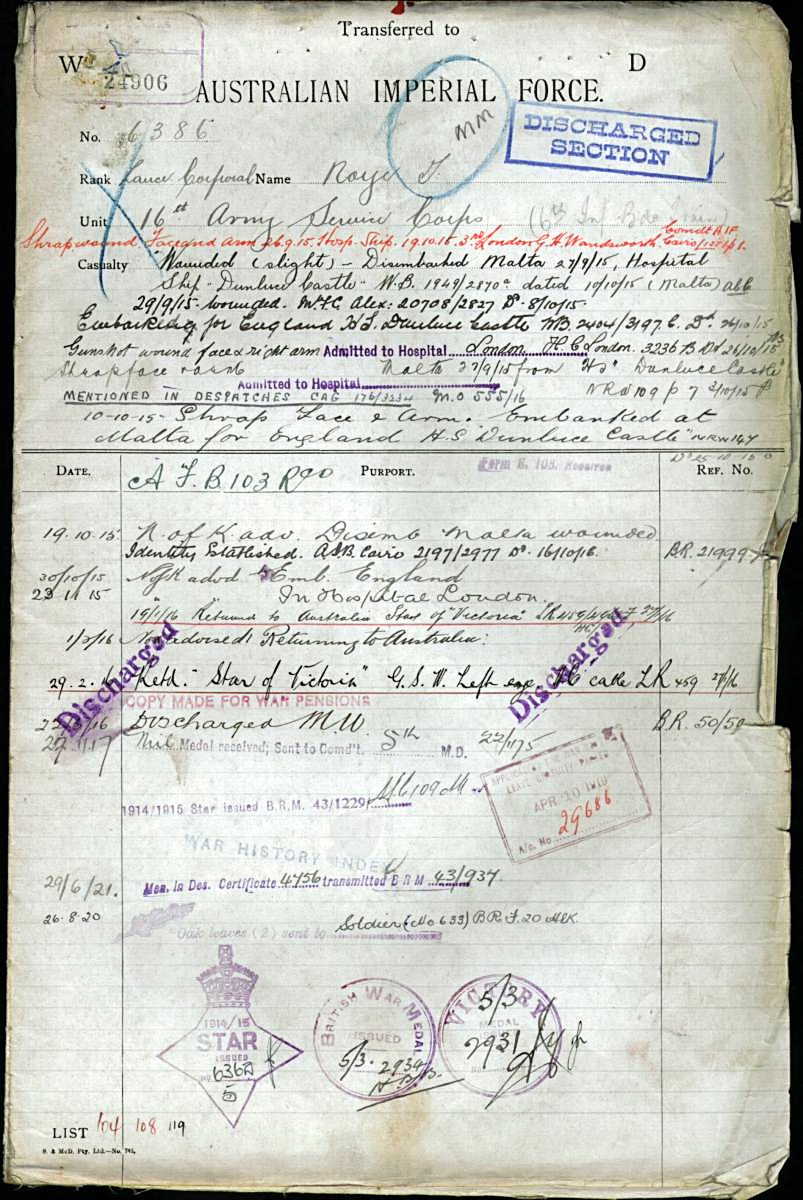 Transferred to
W D
24906
AUSTRALIAN IMPERIAL FORCE.
MM
DISCHARGED
SECTION
No. 6386
Rank Lance Corporal Name Roye F.
Unit 16th Army Service Corps (6th Inf Bde Train)
Shrap wound Face and Arm 26.9.15. Hosp. Ship. 19.10.15. 3rd London G.H. Wandsworth.
Casualty Wounded (slight) - Disembarked Malta 27/9/15, Hospital
Ship "Dunluce Castle" W.B. 1949/2870a dated 10/10/15 (Malta)
29/9/15 wounded. Alex: 20708/2827 8/10/15
Embarking for England H.S. Dunluce Castle WB. 2404/3197. 26/10/15
Gunshot wound face & right arm Admitted to Hospital London. H.C London. 3236 B 26/10/15
Admitted to Hospital Malta 27/9/15 from HS "Dunluce Castle"
MENTIONED IN DESPATCHES CAG 176/3234 M.O 555/16
10-10-15 - Shrap Face & Arm. Embarked at
Malta for England H.S "Dunluce Castle"
DATE. PURPORT. REF. No.
A F. B. 103 Rec
Form B. 103. Received
19.10.15 N. of K adv. Disemb Malta wounded
Identity Established. A.I.B. Cairo 2197/2977 16/10/16. B.R. 21999
30/10/15 NofK advd Emb. England
23 11 15 In Hospital London.
19/1/16 Returned to Australia Star of "Victoria"
1/3/16 Returning to Australia.
Discharged
Discharged
29.2.16 Retd. "Star of Victoria" G.S.W. Left eye cable LR 459
COPY MADE FOR WAR PENSIONS
Discharged M.U. B.R. 50/50
Medal received; Sent to Comd't. 5th M.D. 22/1175
1914/1915 Star issued B.R.M. 43/1229
APR 10 1919
A/c. No 29686
WAR HISTORY INDEX
29/6/21. Men. in Des. Certificate 4756 transmitted B R M 43/937.
26.8.20 Oak leaves (2) sent to Soldier (No 633)
1914/15
STAR
ISSUED
6362
5
BRITISH WAR MEDAL
ISSUED
5/3. 2934
VICTORY
MEDAL
5/3
2931
LIST 104 108 119
S. & McD. Pty. Ltd.—No. 745.